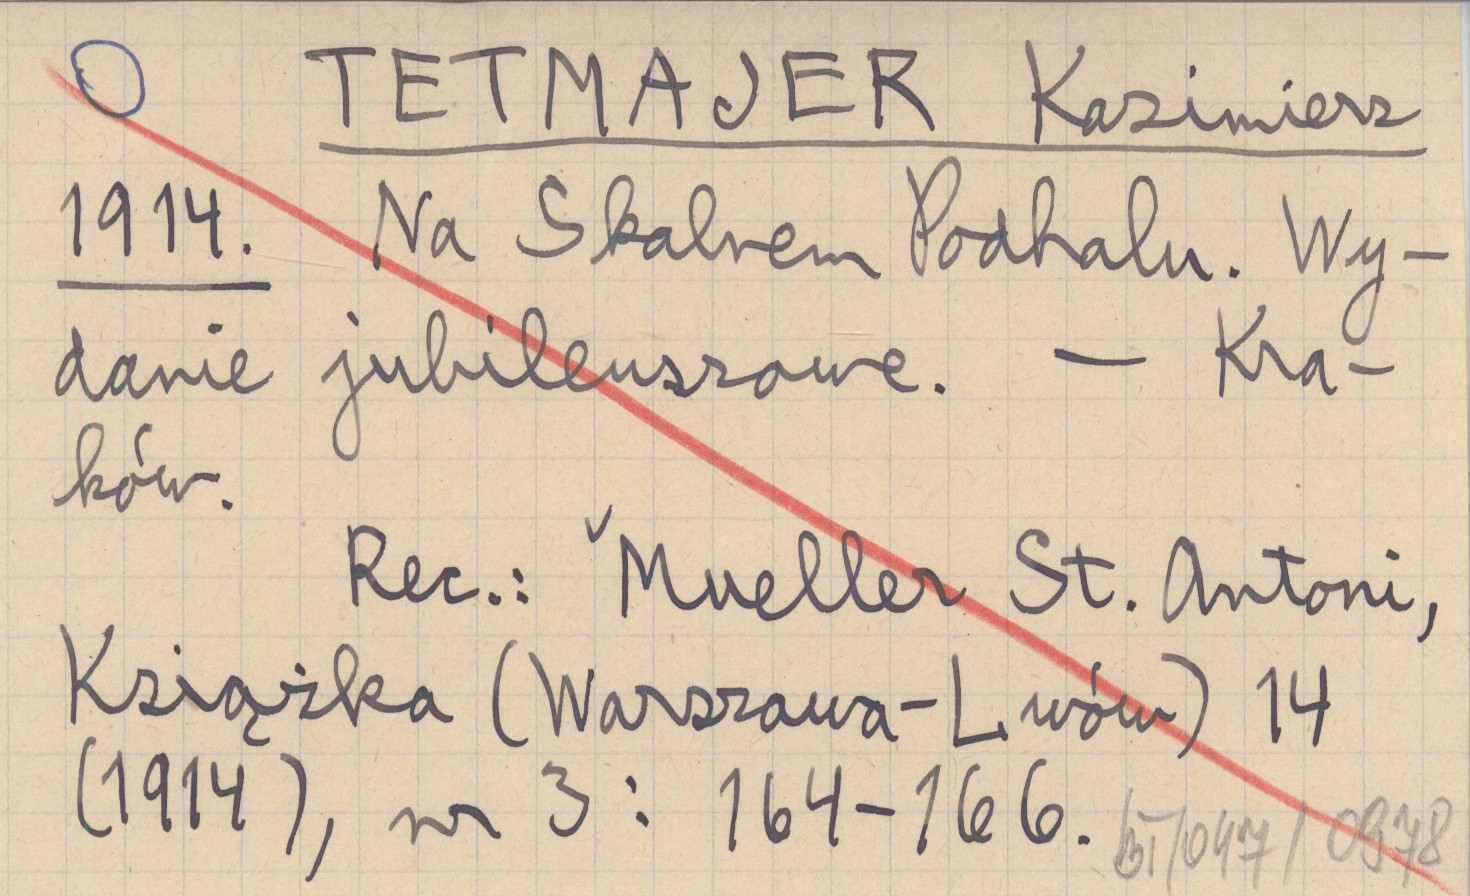 TETMAJER Kazimierz
1914. Na Skalnem Podhalu. Wy-
danie jubileuszowe. — Kra-
ków.
Rec.: Mueller St. Antoni,
Książka (Warszawa-Lwów) 14
(1914), nr 3: 164-166.
/047/0978